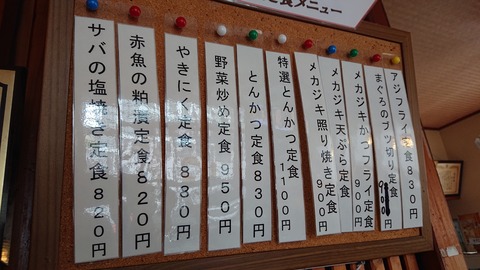 食メニュー
アジフライ定食830円
まぐろのブツ切り定食900円
メカジキかつフライ定食900円
メカジキ天ぷら定食900円
メカジキ照り焼き定食900円
特選とんかつ定食1100円
とんかつ定食830円
野菜炒め定食950円
やきにく定食830円
赤魚の粕漬定食820円
サバの塩焼き定食820円